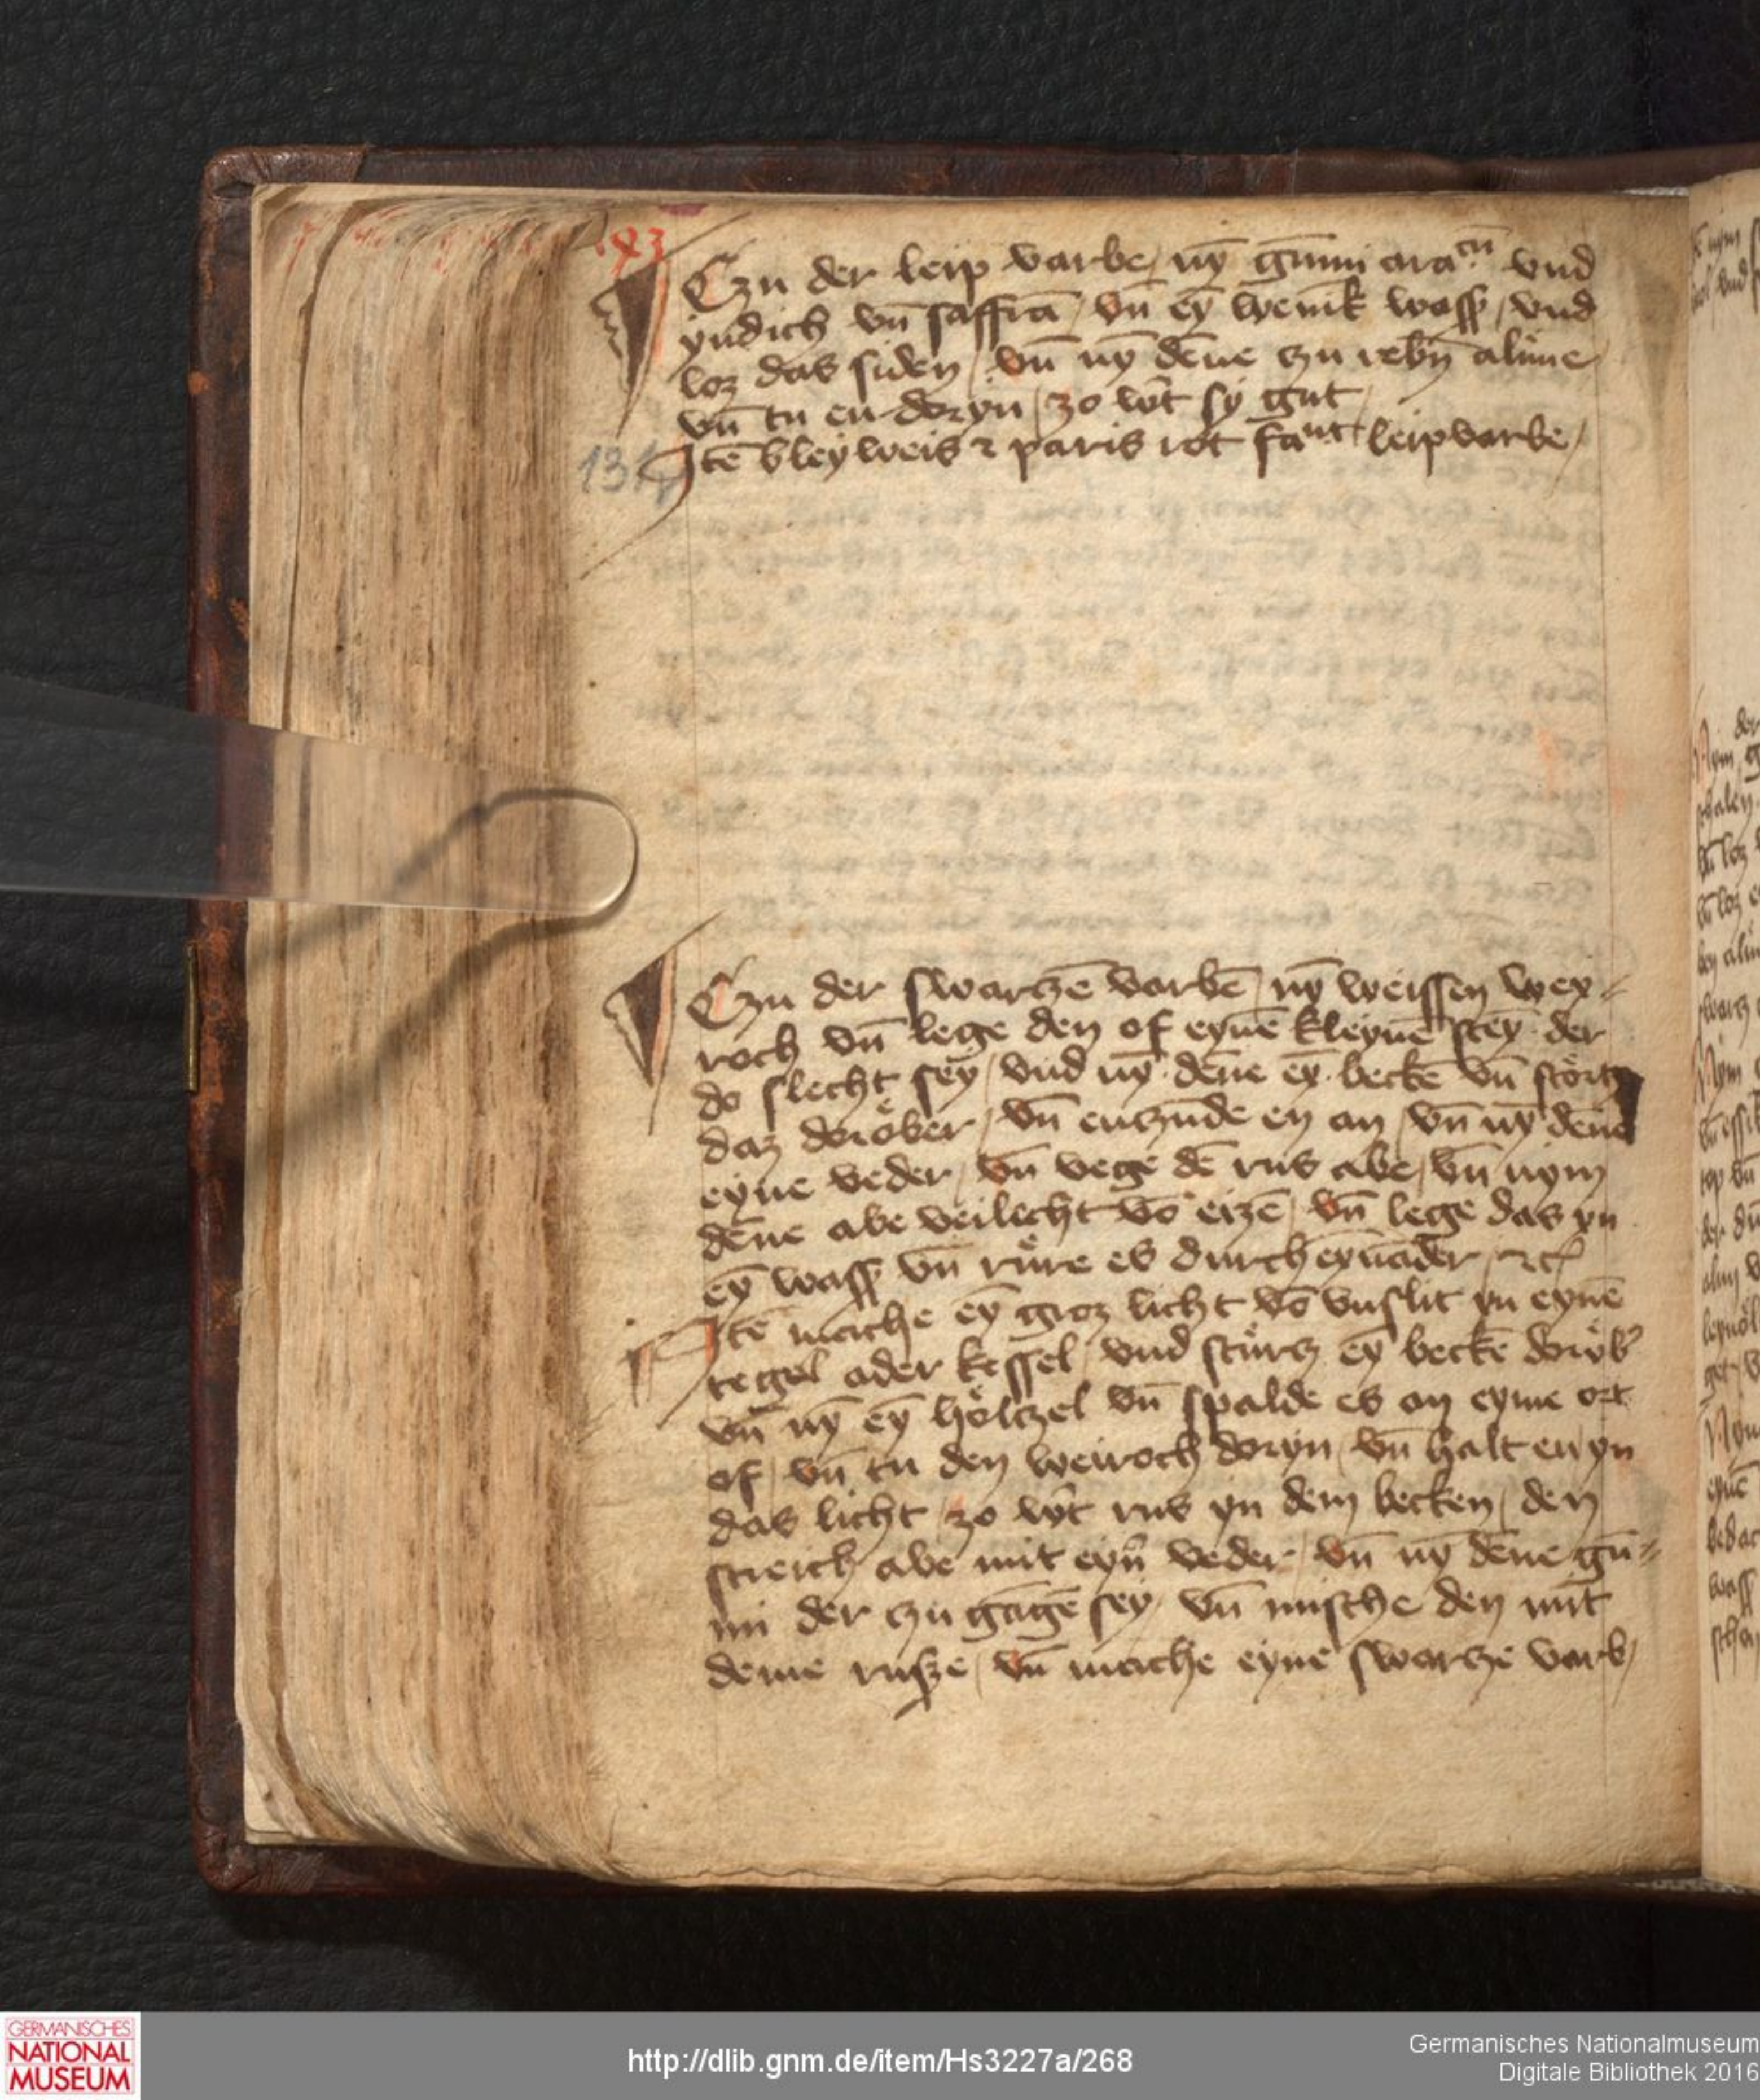 Czu der leip varbe / ny̅ gu̅mi ara^cu̅ vnd
yndich vn̅ saffra̅ / vn̅ ey̅ wenik wass / vnd
loz das siden / vn̅ ny̅ de̅ne czu rebn̅ alune
vn̅ tu en doryn / zo wirt sy gut
131
Ite̅ bleyweis ⁊ paris rot fa^nt leipvarbe /
Czu der swarcze̅ varbe̅ / ny̅ weissen wey⸗
roch vn̅ lege den of eyne̅ kleyne̅ stey̅ der
do slecht sey / vnd ny̅ de̅ne ey̅ becke̅ vn̅ störtz
daz doröber / vn̅ enczu̅de en an / vn̅ ny̅ de̅ne
eyne veder / vn̅ vege de̅ rus abe / vn̅ nym
de̅ne abe veilecht vo̅ eize̅ / vn̅ lege das yn
ey̅ wass vn̅ rüre es durch eyna̅der / ⁊c
Ite̅ mache ey̅ groz licht vo̅ vnslit yn eyne̅
tegel ader kessel / vnd stürcz ey̅ becke̅ doröb'
vn̅ ny̅ ey̅ höltzel vn̅ spalde es an eyme ort
of / vn̅ tu den weiroch doryn / vn̅ halt en yn
das licht / zo wirt rus yn dem becken / den
streich abe mit eyn̅ veder / vn̅ ny̅ de̅ne gu̅⸗
mi der czu ga̅ge̅ sey / vn̅ mische den mit
deme rusze / vn̅ mache eyne swarcze varb /
GERMANISCHES
NATIONAL
MUSEUM
http://dlib.gnm.de/item/Hs3227a/268
Germanisches Nationalmuseum
Digitale Bibliothek 2016